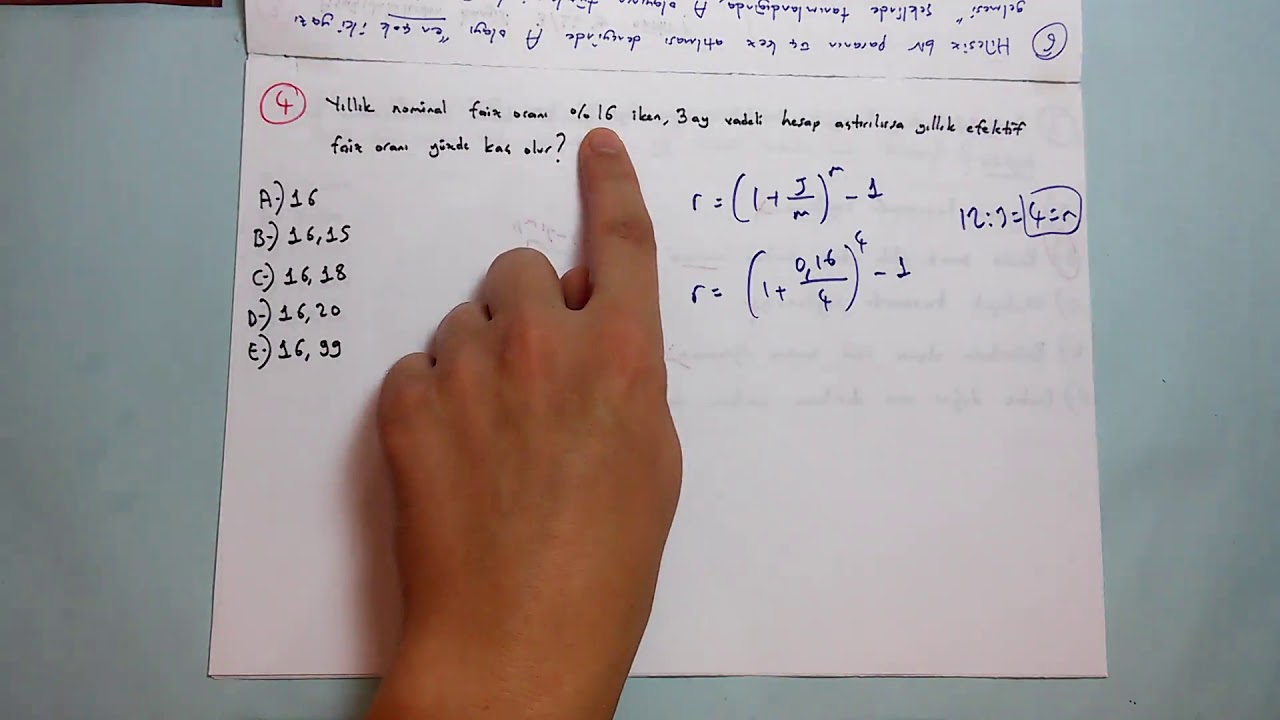 gelmesi" şeklinde tanımlandığında, A olayının
6 Hilesiz bir paranın üç kez atılması deneyinde A olayı "en çok iki yazı
4 Yıllık nominal faiz oranı %16 iken, 3 ay vadeli hesap açtırılırsa yıllık efektif
faiz oranı yüzde kaç olur?
A-) 16
B-) 16,15
C-) 16,18
D-) 16,20
E-) 16,99
r = (1 + J/m)^m - 1
12:3 = 4 = m
r = (1 + 0,16/4)^4 - 1